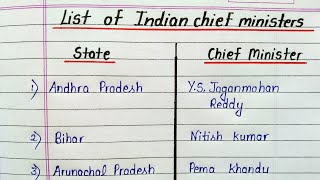 List of Indian chief ministers
State
Chief Minister
1) Andhra Pradesh
Y.S. Jaganmohan
Reddy
2) Bihar
Nitish kumar
3) Arunachal Pradesh
Pema khandu